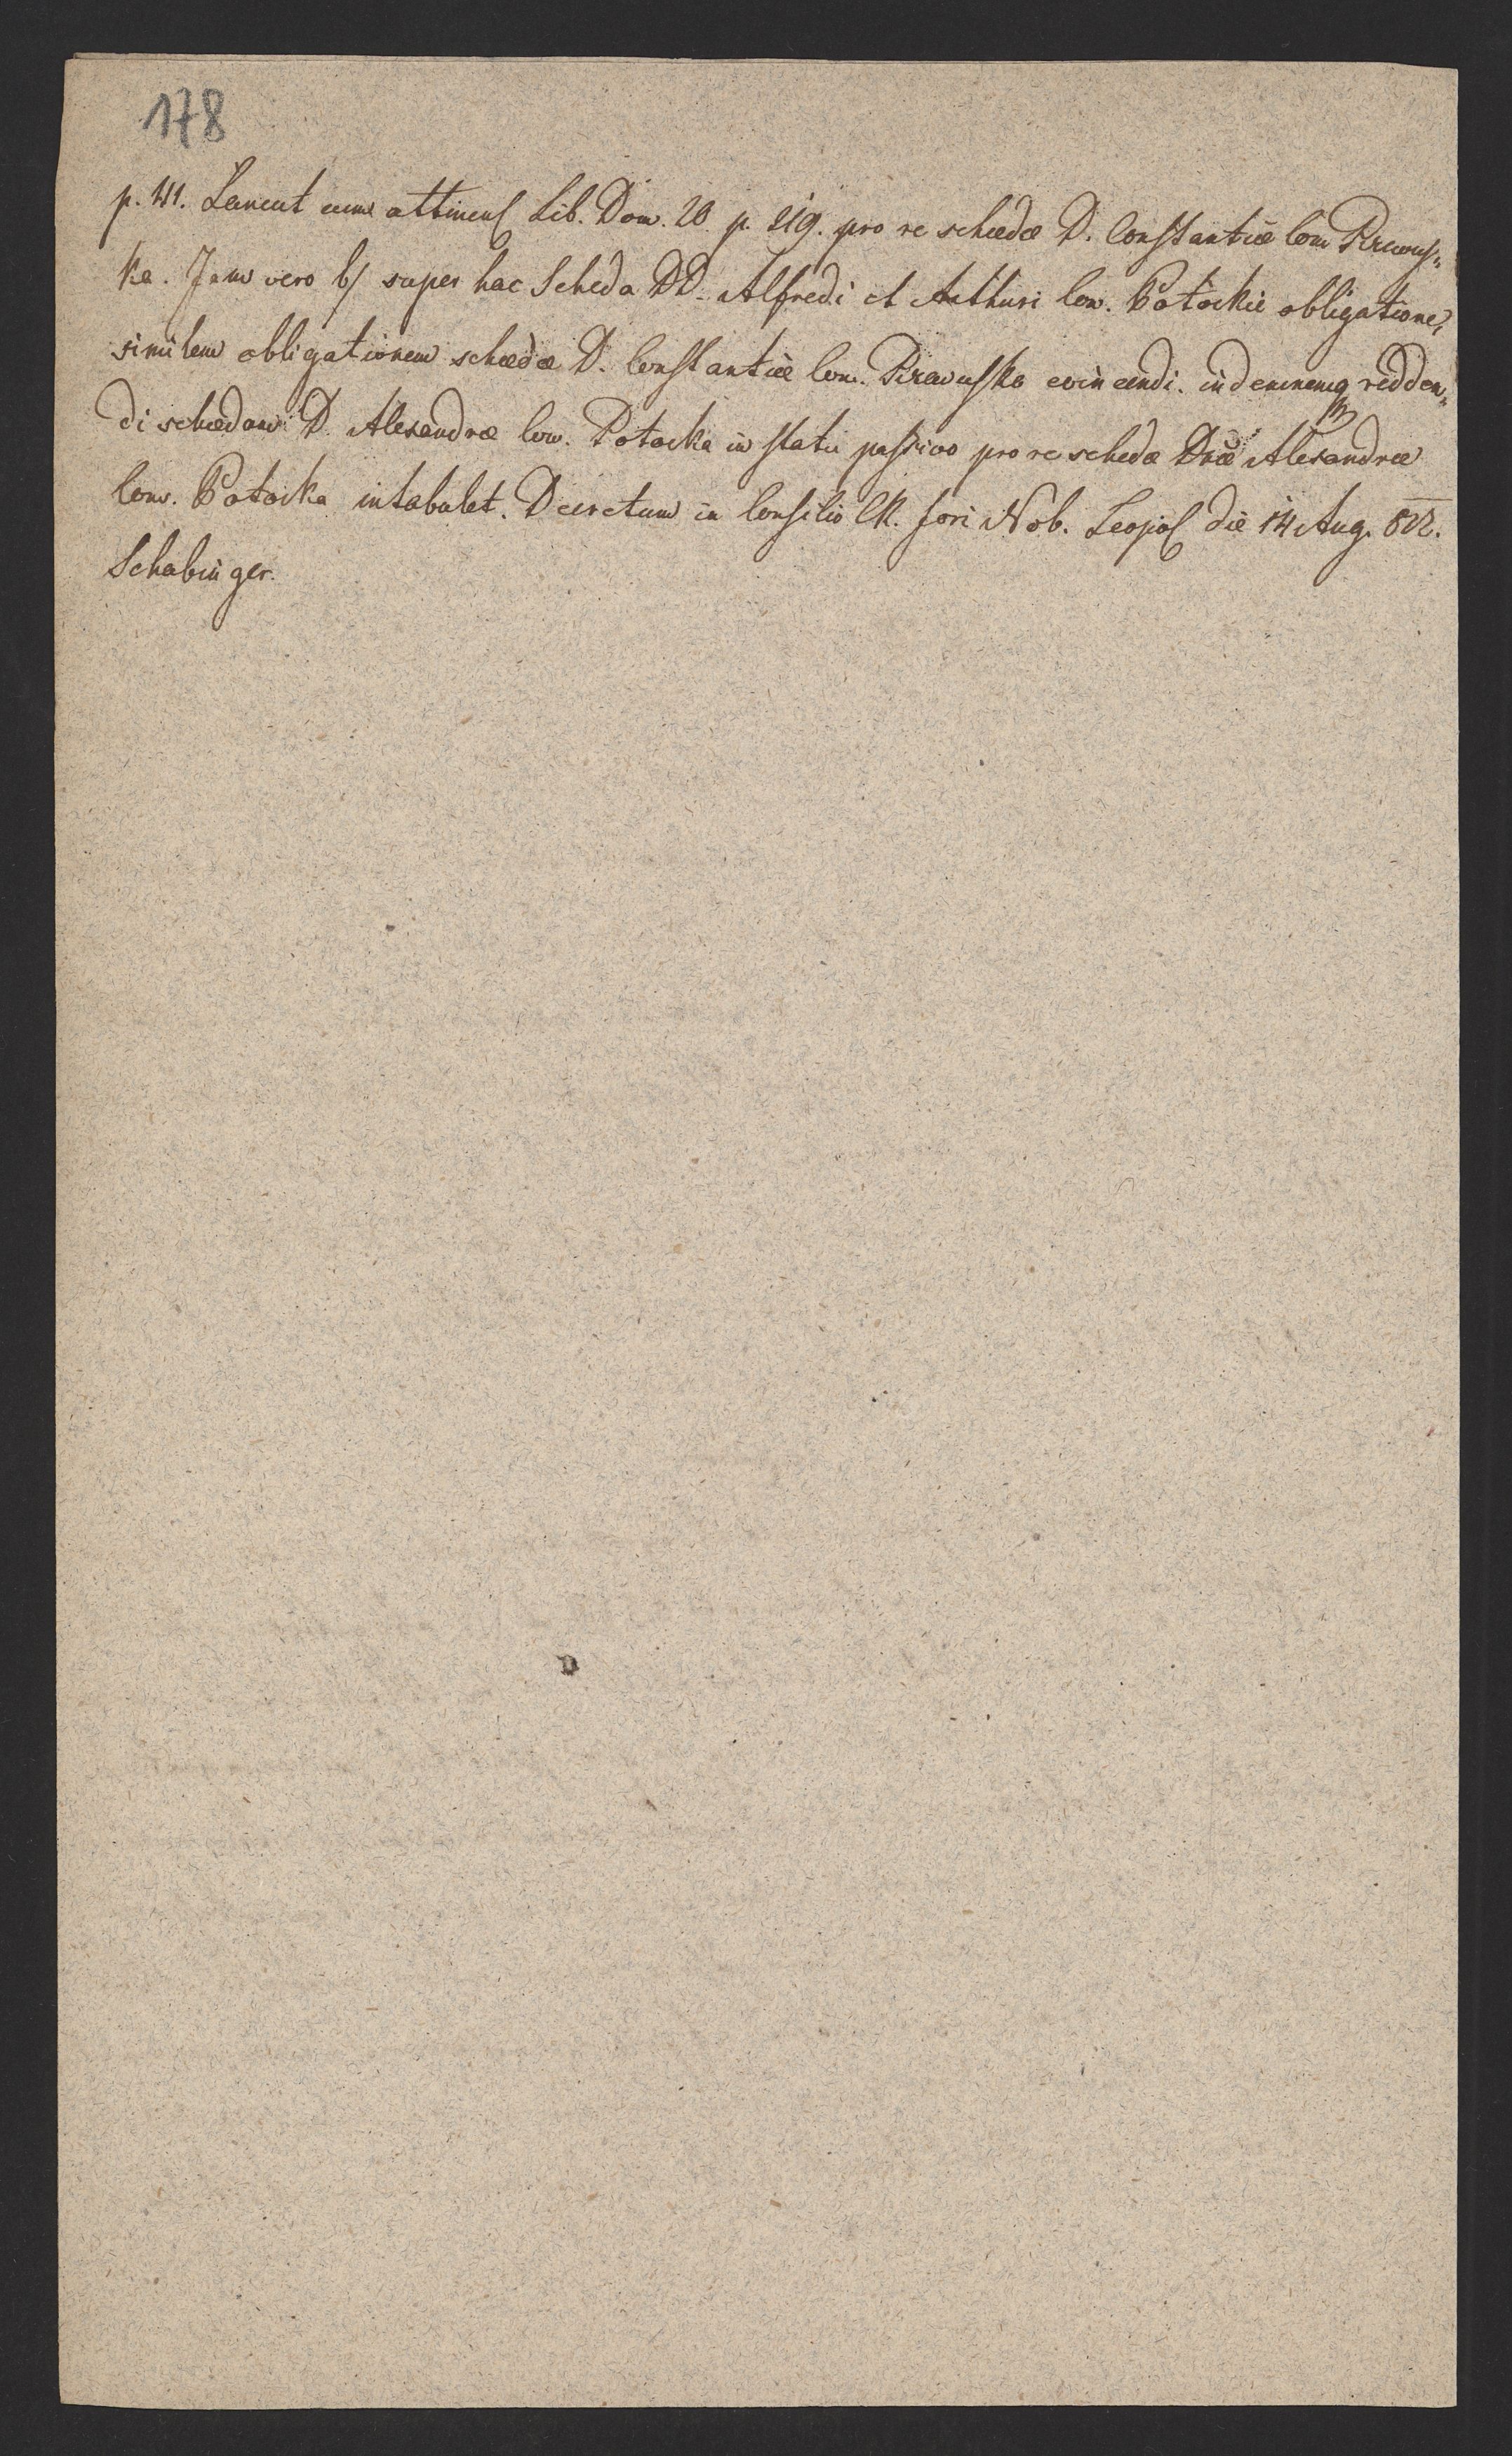 178
p. 411. Lancut cum attinens Lib. Dom. 20. p. 219. pro re schedæ D. Constantiæ Com Rzewus„
ka. Jam vero b/ super hac Scheda DD. Alfredi et Arthuri Com. Potockie obligatione,
similem obligationem schedæ D. Constantiæ Com. Rzewuska evincendi. indemnemq redden„
di schedam D. Alexandræ Com. Potocka in statu passivo pro re scheda Dnæ Alexandræ
Com. Potocka intabulet. Decretum in Consilio CR. fori Nob. Leopol die 14 Aug. 822.
Schabinger.